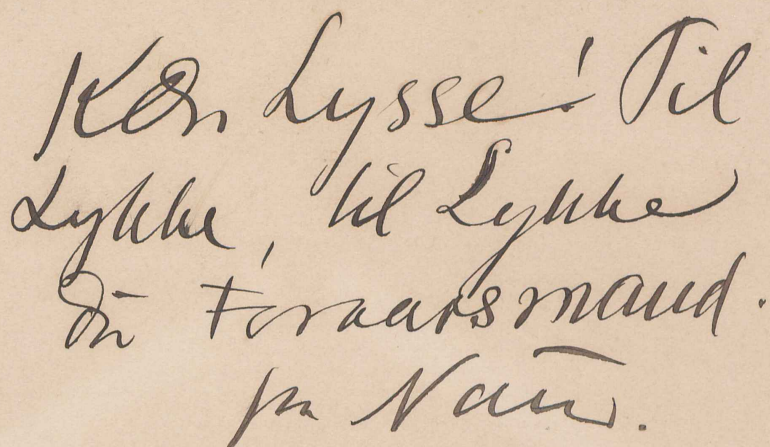 Kære Lysse! Til
Lykke, til Lykke
du Foraarsmand.
fra